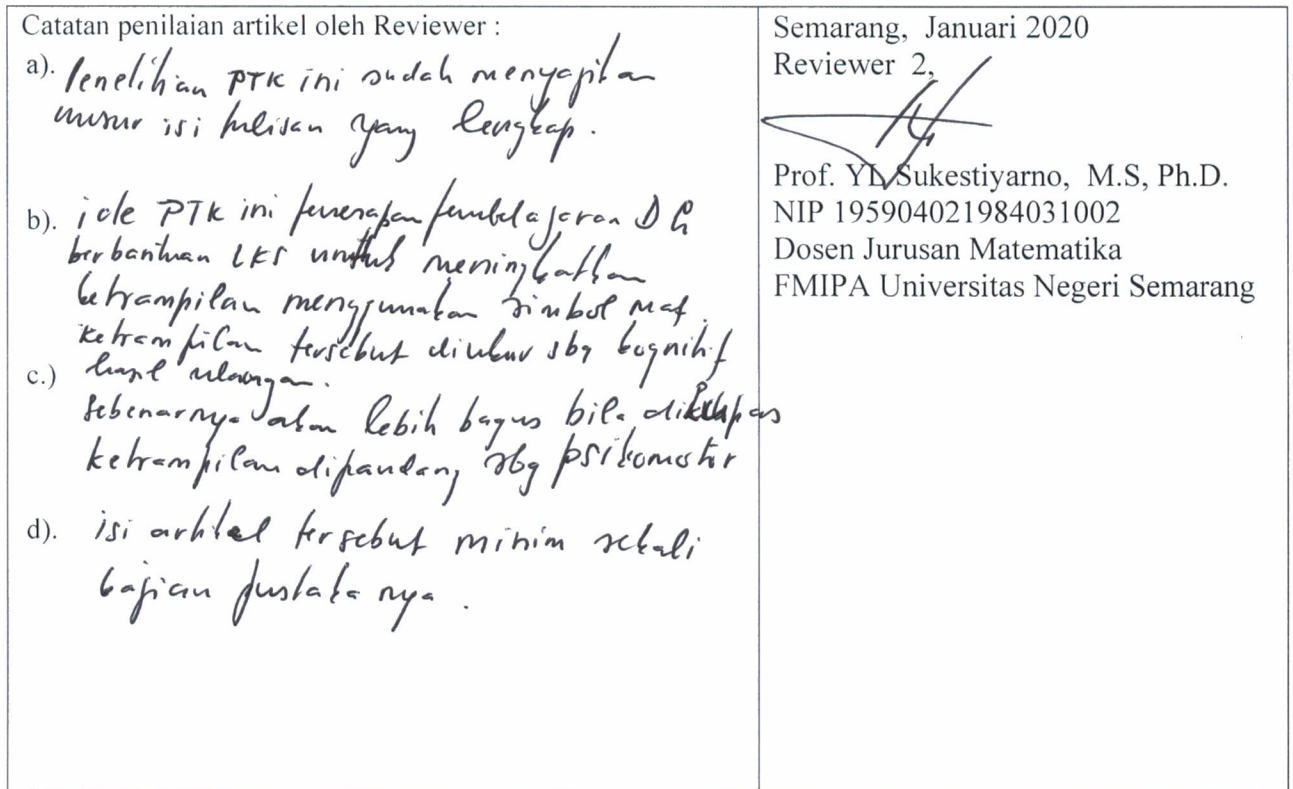 Catatan penilaian artikel oleh Reviewer :
a). Penelitian PTK ini sudah menyajikan
unsur isi tulisan yang lengkap.
b). ide PTK ini penerapan pembelajaran DL
berbantuan LKS untuk meningkatkan
ketrampilan menggunakan simbol mat.
ketrampilan tersebut diukur sbg kognitif
hasil ulangan.
c.) sebenarnya akan lebih bagus bila dikupas
ketrampilan dipandang sbg psikomotor
d). isi artikel tersebut minim sekali
bagian pustaka nya.
Semarang, Januari 2020
Reviewer 2,
Prof. YL Sukestiyarno, M.S, Ph.D.
NIP 195904021984031002
Dosen Jurusan Matematika
FMIPA Universitas Negeri Semarang